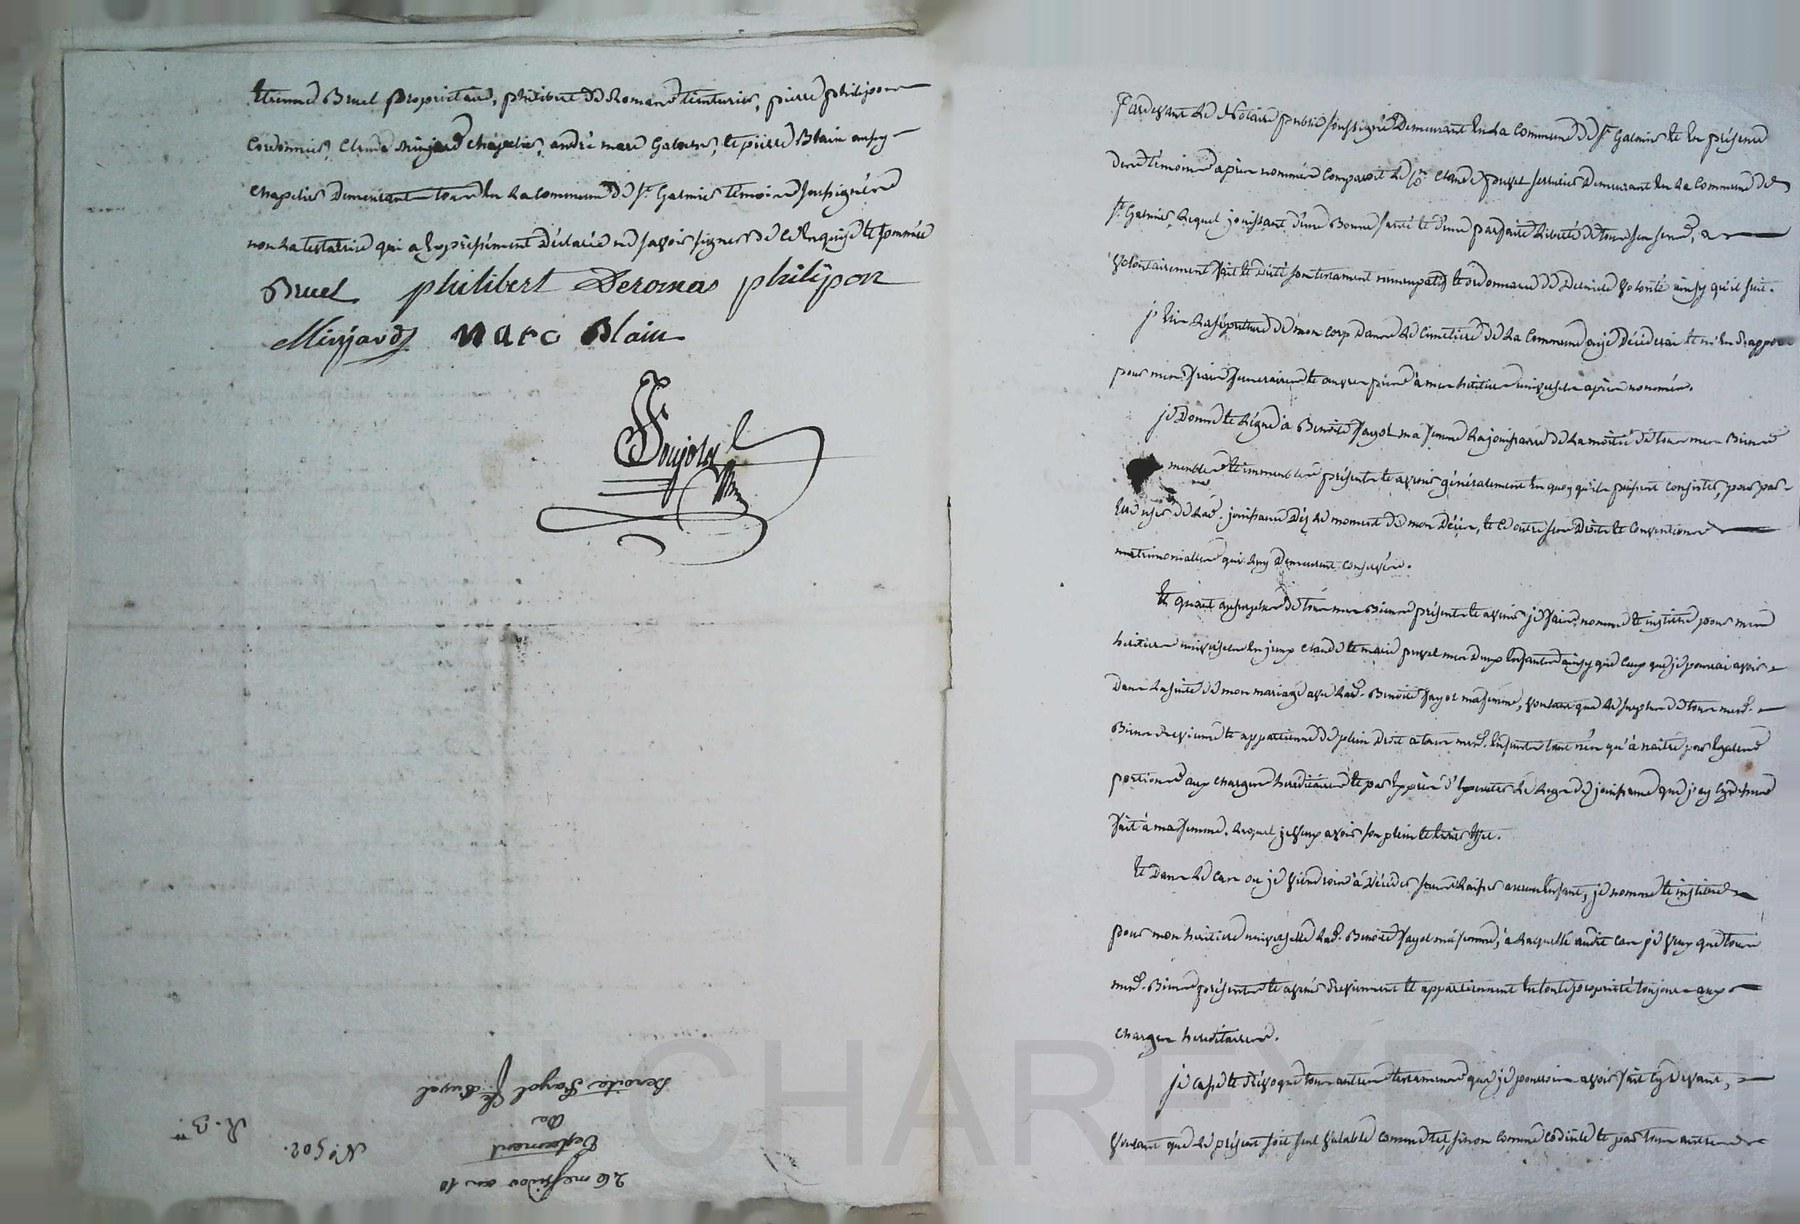 Etienne Bruel proprietaire, philibert de Romans teinturier, pierre philipon
Cordonnier, Claude Minjard chapelier, andré marc Galocher, et pierre Blain aussy
Chapelier demeurant tous en la commune de St. Galmier témoins soussignés
non la testatrice qui a expressément déclaré ne savoir signer de ce enquise et sommée
Bruel philibert Deromas philipon
Minjard Marc Blain
Pardevant le Notaire public soussigné Demeurant en la Commune de St. Galmier et en présence
des témoins après nommés comparoit le sr. Claude puvel serrurier Demeurant en la Commune de
St. Galmier, lequel jouissant d'une Bonne santé et d'une parfaite liberté de tous ses sens, a
volontairement fait et dicté son testament nuncupatif et ordonnance de Derniere volonté ainsy qu'il suit.
j'élis la sépulture de mon corp dans le Cimetiere de la Commune où je décéderai et m'en rapporte
pour mes frais funeraires et œuvres pies à mes héritiers universels après nommés.
je Donne et Légue à Benoite fayol ma femme la jouissance de la moitié de tous mes Biens
meubles et immeubles présents et avenir généralement en quoy qu'ils puissent consister, pour par
elle user de lad. jouissance Dès le moment de mon décès, et ce outre ses Droits et Conventions
matrimoniales qui luy Demeurent conservés.
Et quant au surplus de tous mes Biens présents et avenir je fais, nomme et institue pour mes
heritiers universels en jceux Claude et marie puvel mes deux Enfants ainsy que ceux que je pourrai avoir
dans la suite de mon mariage avec lad. Benoite fayol ma femme, voulant que le surplus de tous mesd.
Biens revienne et appartienne de plein droit a tous mesd. Enfants tant nés qu'à naitre pour Egales
portions aux charges héréditaires et par Exprès d'Executer le Legs de jouissance que j'ay cy dessus
fait à ma femme, lequel je veux avoir son plein et Entier Effet.
Et Dans le cas ou je viendrois à décéder sans laisser aucun Enfant, je nomme et institue
pour mon héritiere universelle lad. Benoite fayol ma femme, à laquelle audit cas je veux que tous
mesd. Biens présents et avenir reviennent et appartiennent En toute propriété toujours aux
charges héréditaires.
je casse et révoque tous autres testaments que je pourrois avoir fait cy devant,
voulant que le présent soit seul valable comme tel, sinon comme codicile et par tous autres
26 messidor an 10
Testament
de
Benoite Fayol fe. Puvel
No. 502.
R. B.
CHAREYRON